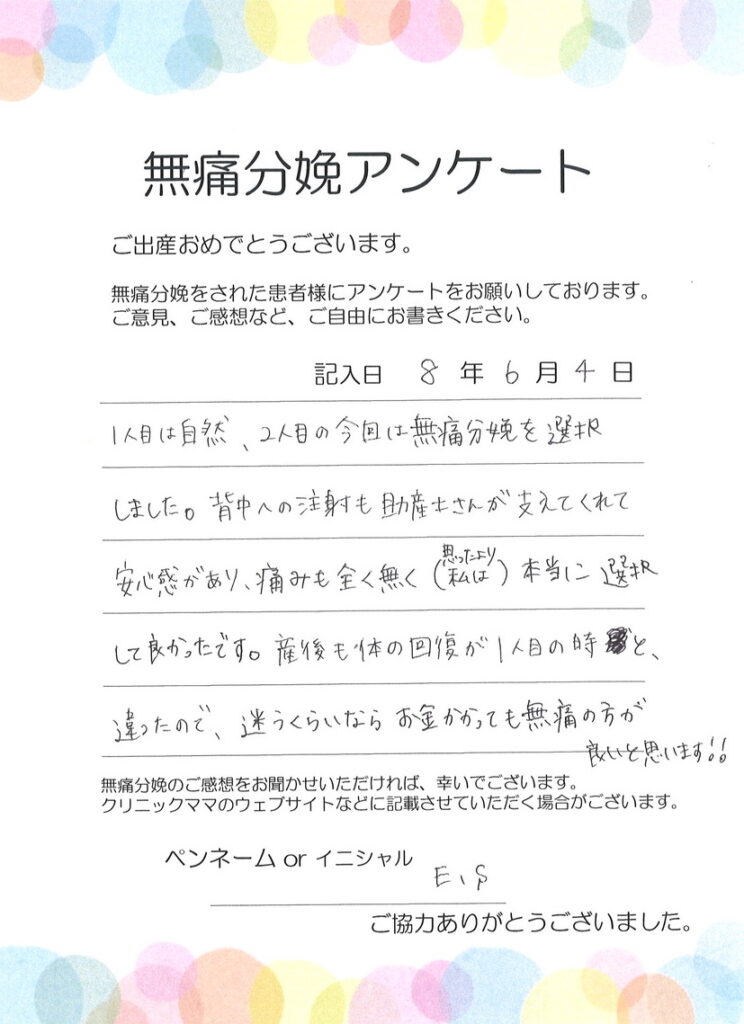 無痛分娩アンケート
ご出産おめでとうございます。
無痛分娩をされた患者様にアンケートをお願いしております。
ご意見、ご感想など、ご自由にお書きください。
記入日 8 年 6 月 4 日
1人目は自然、2人目の今回は無痛分娩を選択
しました。背中への注射も助産士さんが支えてくれて
安心感があり、痛みも全く無く(思ったより私は)本当に選択
して良かったです。産後も体の回復が1人目の時と、
違ったので、迷うくらいならお金かかっても無痛の方が
良いと思います!!
無痛分娩のご感想をお聞かせいただければ、幸いでございます。
クリニックママのウェブサイトなどに記載させていただく場合がございます。
ペンネーム or イニシャル
E、S
ご協力ありがとうございました。